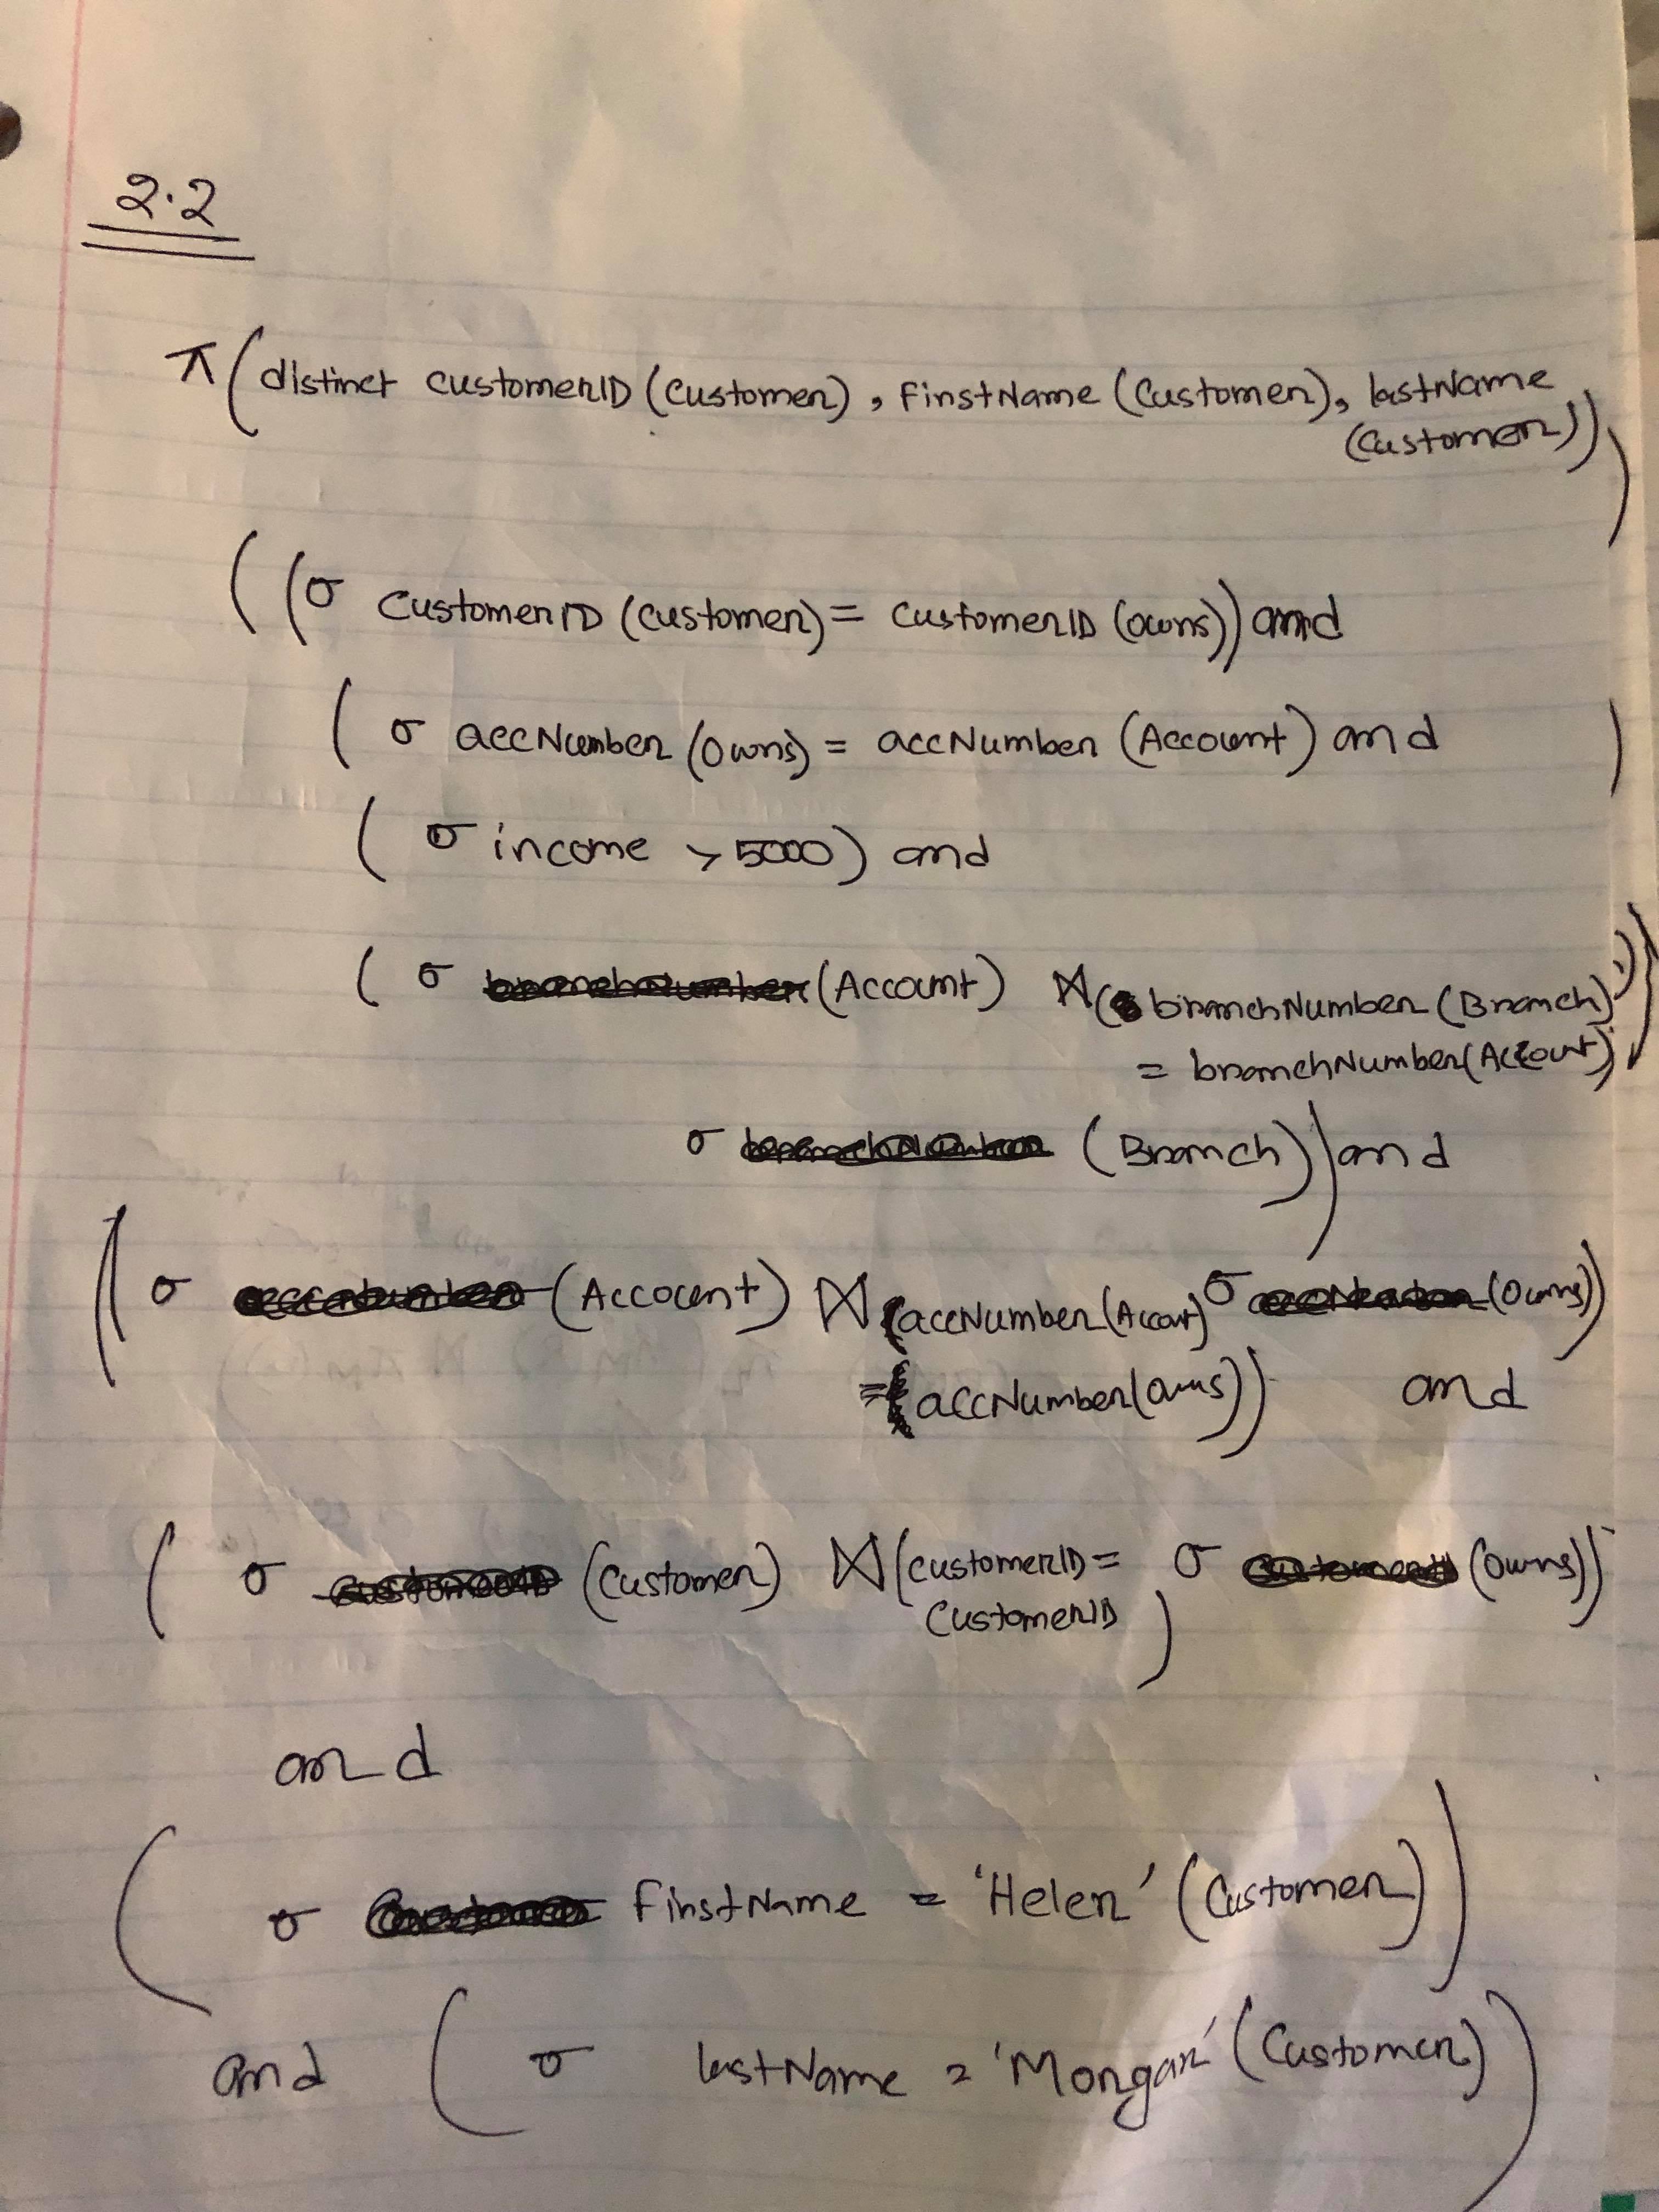 2.2
π (distinct customerID (Customer), FirstName (Customer), lastName
(Customer)))
((σ CustomerID (customer) = customerID (owns)) and
( σ accNumber (Owns) = accNumber (Account) and )
( σ income > 5000) and
( σ branchNumber (Account) ⋈ ( branchNumber (Branch)))
= branchNumber (Account))
σ branchNumber (Branch)) and
(( σ accnumber (Account) ⋈ (accNumber (Accout) σ accNumber (Owns))
= accNumber (owns)) and
( σ customerID (Customer) ⋈ (customerID = σ customerID (owns))
CustomerID )
and
( σ FirstName = 'Helen' (Customer))
and ( σ lastName = 'Morgan' (Customer))